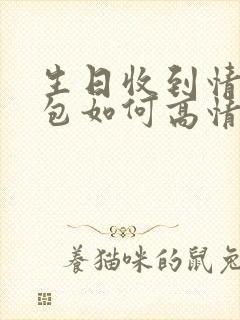 生日收到情
包如何高情
養猫咪的鼠兔